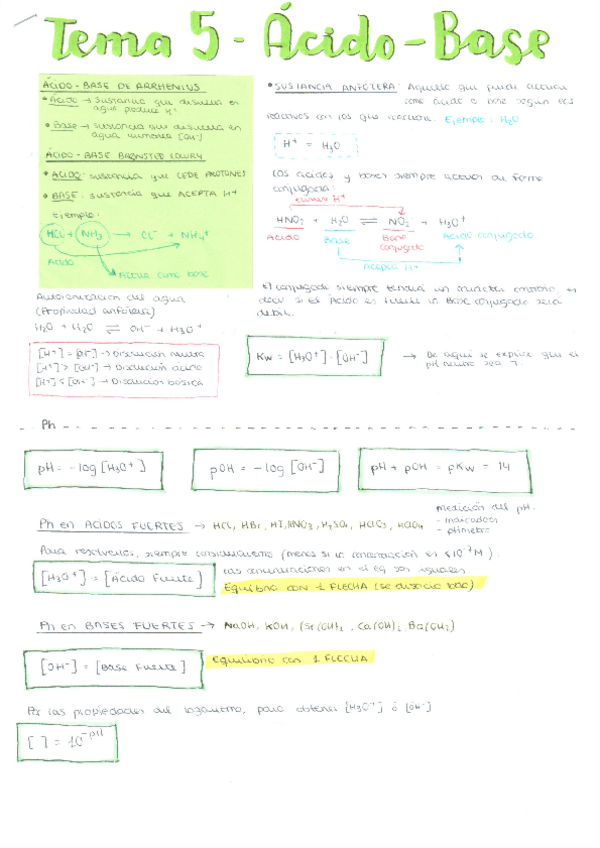 Tema 5 - Ácido-Base
ÁCIDO-BASE DE ARRHENIUS
• Ácido → sustancia que disuelta en
agua produce H⁺
• Base → sustancia que disuelta en
agua [OH⁻]
ÁCIDO-BASE BRØNSTED LOWRY
• ÁCIDO: sustancia que CEDE PROTONES
• BASE: sustancia que ACEPTA H⁺
Ejemplo:
HCl + NH₃ → Cl⁻ + NH₄⁺
Ácido
Actúa como base
Autoionización del agua
(Propiedad anfótera)
H₂O + H₂O ⇌ OH⁻ + H₃O⁺
[H⁺] = [OH⁻] → Disolución neutra
[H⁺] > [OH⁻] → Disolución ácida
[H⁺] < [OH⁻] → Disolución básica
• SUSTANCIA ANFÓTERA: Aquella que puede actuar
como ácido o base según los
reactivos con los que reacciona. Ejemplo: H₂O
H⁺ = H₃O⁺
Los ácidos y bases siempre actúan de forma
conjugada:
H⁺
HNO₂ + H₂O ⇌ NO₂⁻ + H₃O⁺
Ácido Base Base conjugada Ácido conjugado
Acepta H⁺
El conjugado siempre tendrá un carácter contrario, es
decir si el Ácido es fuerte la Base conjugada será
débil.
Kw = [H₃O⁺] · [OH⁻] → De aquí se explica que el
pH neutro sea 7
Ph
pH = -log [H₃O⁺]
pOH = -log [OH⁻]
pH + pOH = pKw = 14
Ph en ÁCIDOS FUERTES → HCl, HBr, HI, HNO₃, H₂SO₄, HClO₃, HClO₄
medición del pH.
- indicador
- pHmetro
Para resolverlos, siempre consideraremos (menos si la concentración es <10⁻⁷M):
[H₃O⁺] = [Ácido Fuerte]
Las concentraciones en el eq son iguales
Equilibrio con 1 FLECHA (se disocia todo)
Ph en BASES FUERTES → NaOH, KOH, (Sr(OH)₂, Ca(OH)₂, Ba(OH)₂)
[OH⁻] = [Base Fuerte]
Equilibrio con 1 FLECHA
Por las propiedades del logaritmo, para obtener [H₃O⁺] ó [OH⁻]
[ ] = 10⁻ᵖᴴ